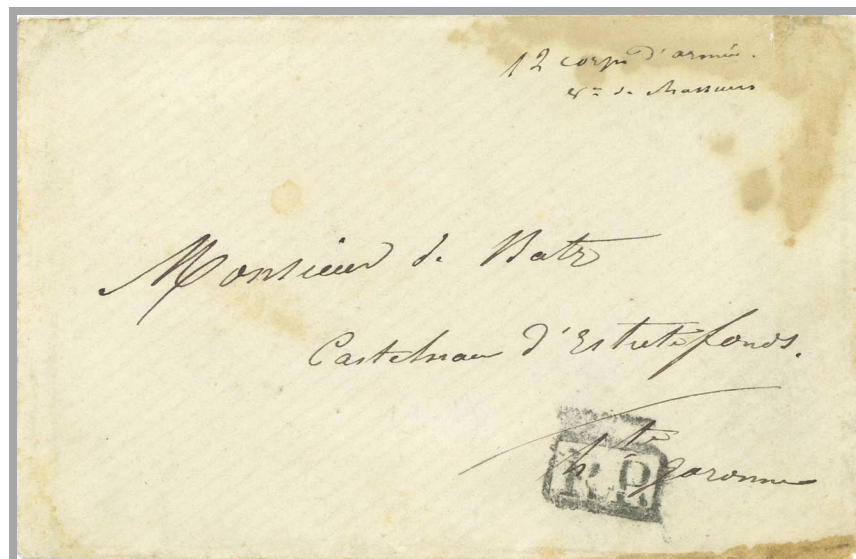 12 corps d'armée.
de
Monsieur de Batz
Castelnau d'Estretefonds.
hte garonne
P.P.